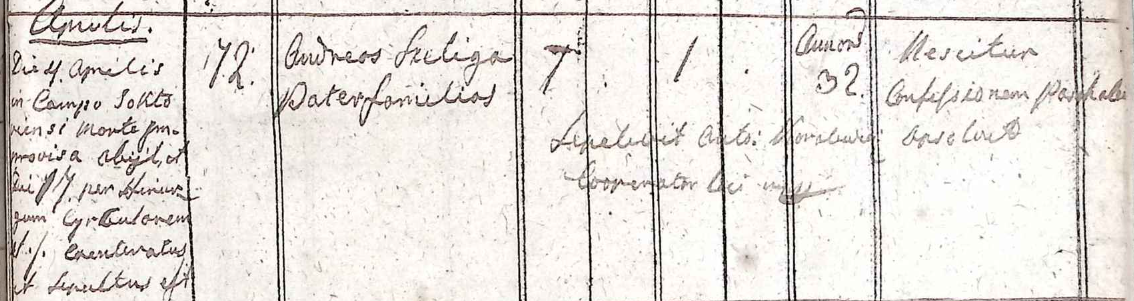 Aprilis.
Die 4 Aprilis
in Campo
riensi Morte im-
provisa abijt, et
die 17 per Chirur-
gum Cyrcularem
et sepultus est
72.
Andreas Szeliga
Paterfamilias
1
1
.
Annorũ
32.
Nescitur
Confessionem Paschale
absolvit
Sepelivit Anto:
Cooperator loci